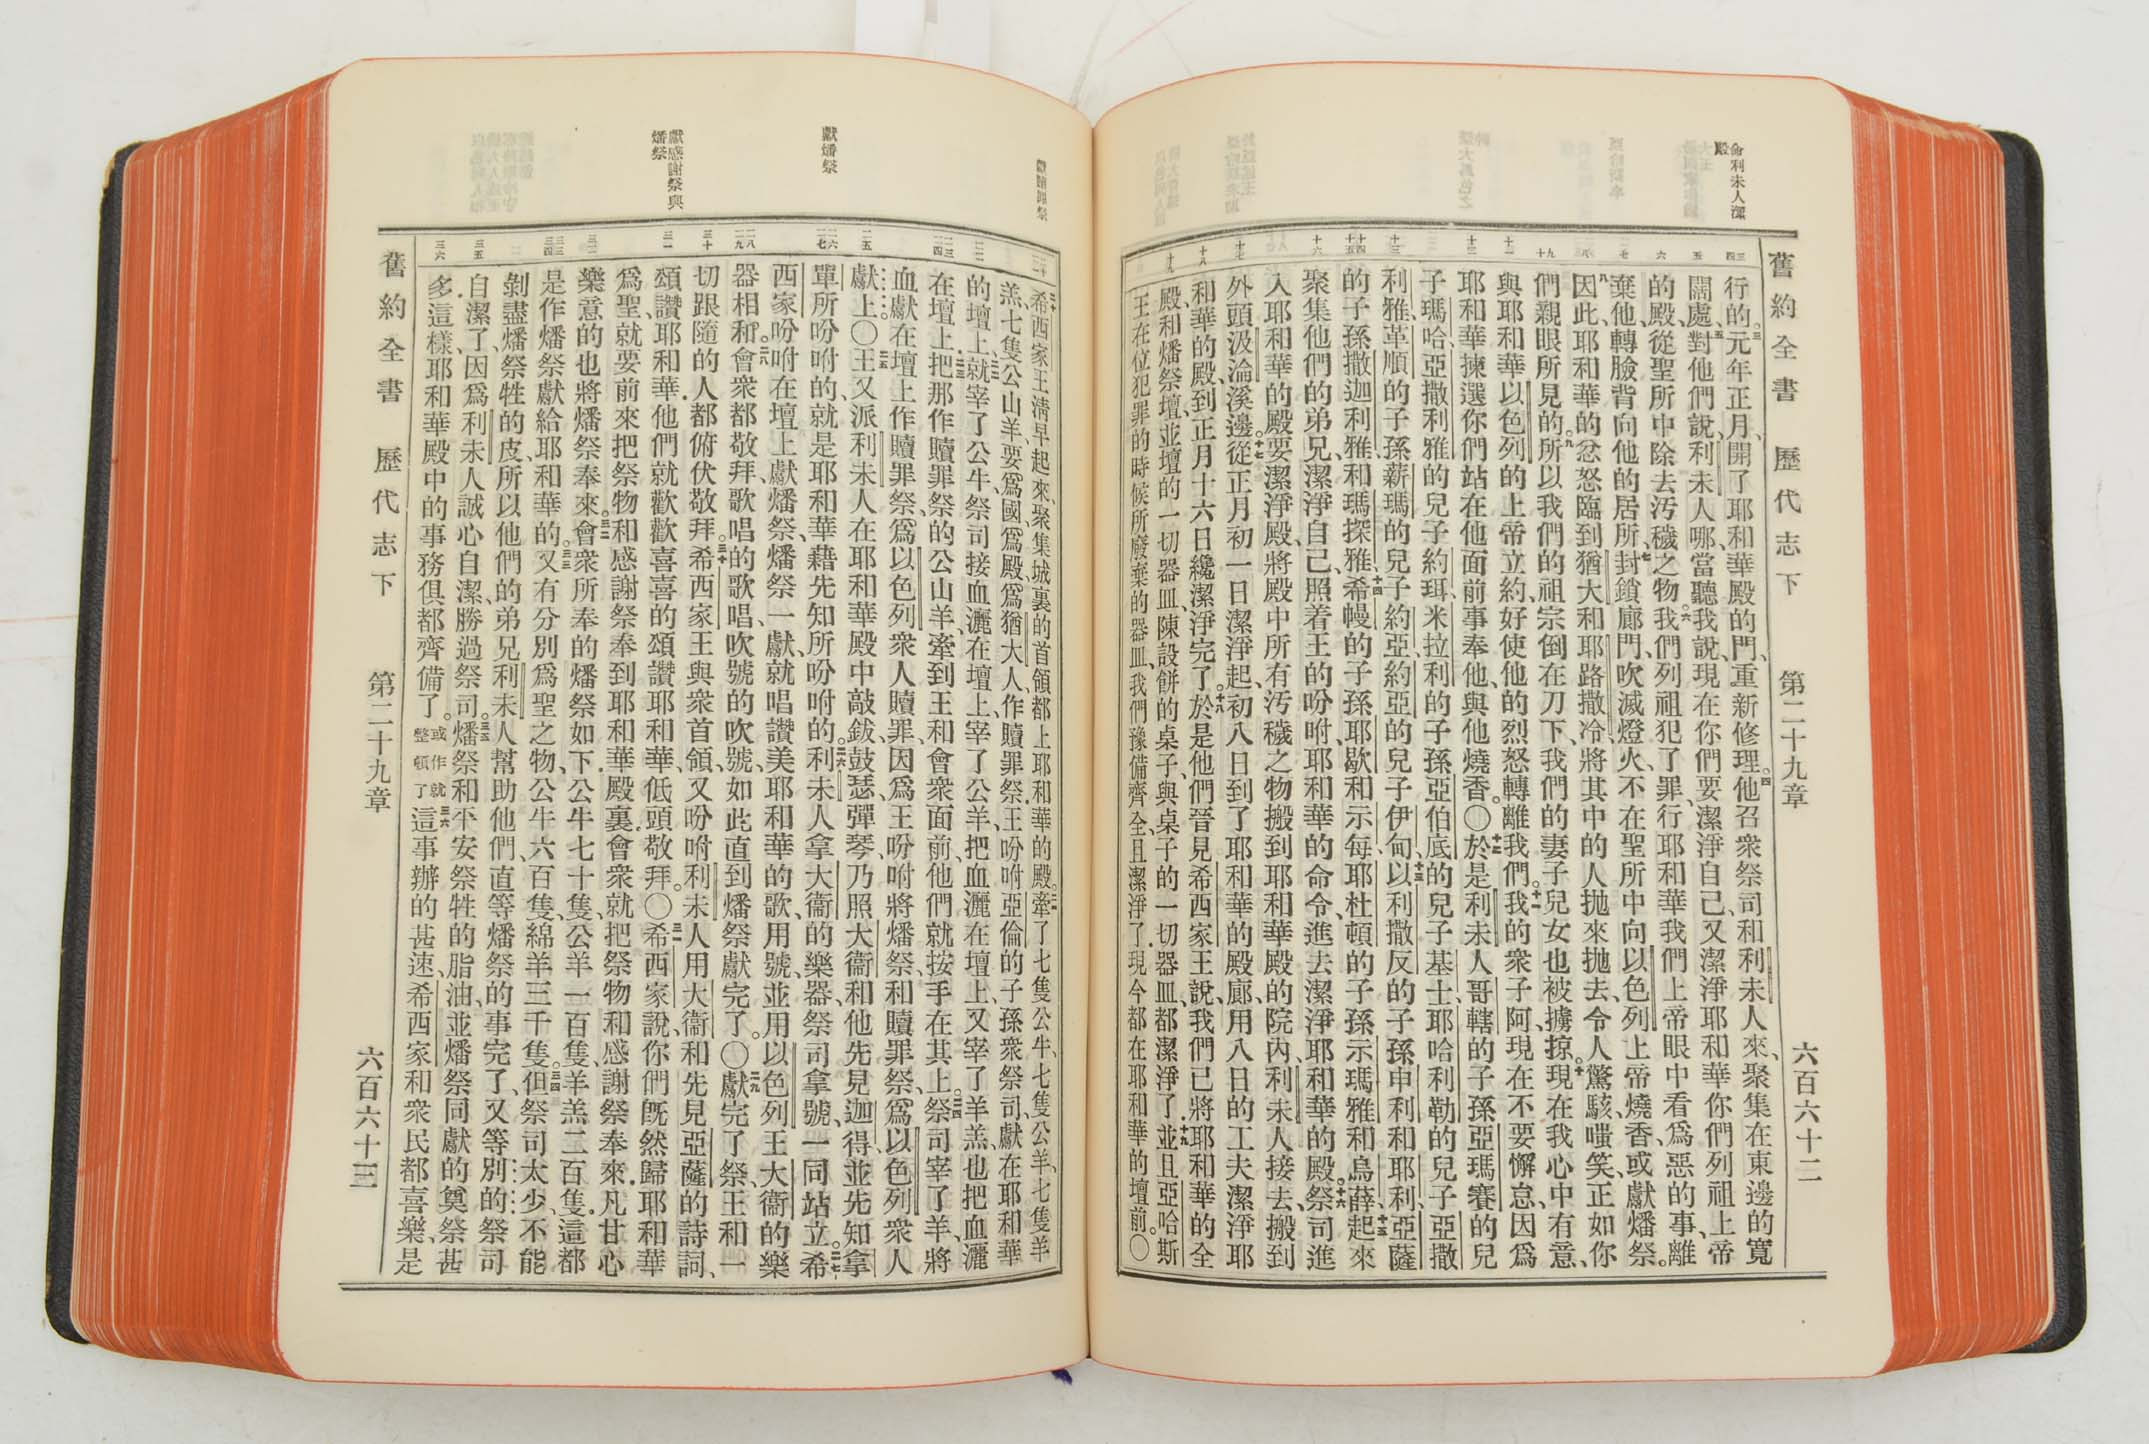 命利未人潔
殿
舊約全書 歷代志下 第二十九章 六百六十二
行的元年正月、開了耶和華殿的門、重新修理。他召衆祭司和利未人來、聚集在東邊的寬
闊處、對他們說、利未人哪、當聽我說、現在你們要潔淨自己、又潔淨耶和華你們列祖上帝
的殿、從聖所中除去汚穢之物。我們列祖犯了罪、行耶和華我們上帝眼中看爲惡的事、離
棄他、轉臉背向他的居所、封鎖廊門、吹滅燈火、不在聖所中向以色列上帝燒香、或獻燔祭。
因此、耶和華的忿怒臨到猶大和耶路撒冷、將其中的人抛來抛去、令人驚駭、嗤笑、正如你
們親眼所見的。所以我們的祖宗倒在刀下、我們的妻子兒女也被擄掠。現在我心中有意、
與耶和華以色列的上帝立約、好使他的烈怒轉離我們。我的衆子阿、現在不要懈怠、因爲
耶和華揀選你們站在他面前事奉他、與他燒香。〇於是利未人哥轄的子孫亞瑪賽的兒
子瑪哈、亞撒利雅的兒子約珥、米拉利的子孫亞伯底的兒子基士、耶哈利勒的兒子亞撒
利雅、革順的子孫薪瑪的兒子約亞、約亞的兒子伊甸、以利撒反的子孫申利和耶利、亞薩
的子孫撒迦利雅和瑪探雅、希幔的子孫耶歇和示每、耶杜頓的子孫示瑪雅和烏薛、起來
聚集他們的弟兄、潔淨自己、照着王的吩咐、耶和華的命令、進去潔淨耶和華的殿。祭司進
入耶和華的殿要潔淨殿、將殿中所有汚穢之物搬到耶和華殿的院內、利未人接去、搬到
外頭汲淪溪邊。從正月初一日潔淨起、初八日到了耶和華的殿廊、用八日的工夫潔淨耶
和華的殿、到正月十六日纔潔淨完了。於是他們晉見希西家王、說、我們已將耶和華的全
殿、和燔祭壇、並壇的一切器皿、陳設餅的桌子、與桌子的一切器皿、都潔淨了。並且亞哈斯
王在位犯罪的時候所廢棄的器皿、我們預備齊全、且潔淨了、現今都在耶和華的壇前。〇
獻贖罪祭
獻燔祭
獻感謝祭與
燔祭
希西家王清早起來、聚集城裏的首領都上耶和華的殿。牽了七隻公牛、七隻公羊、七隻羊
羔、七隻公山羊、要爲國、爲殿、爲猶大人作贖罪祭.王吩咐亞倫的子孫衆祭司、獻在耶和華
的壇上、就宰了公牛、祭司接血灑在壇上、宰了公羊、把血灑在壇上、又宰了羊羔、也把血灑
在壇上.把那作贖罪祭的公山羊、牽到王和會衆面前、他們就按手在其上。祭司宰了羊、將
血獻在壇上作贖罪祭、爲以色列衆人贖罪、因爲王吩咐將燔祭、和贖罪祭、爲以色列衆人
獻上。〇王又派利未人在耶和華殿中敲鈸、鼓瑟、彈琴、乃照大衞和他先見迦得、並先知拿
單所吩咐的、就是耶和華藉先知所吩咐的。利未人拿大衞的樂器、祭司拿號、一同站立。希
西家吩咐在壇上獻燔祭、燔祭一獻、就唱讚美耶和華的歌、用號、並用以色列王大衞的樂
器相和。會衆都敬拜、歌唱的歌唱、吹號的吹號、如此直到燔祭獻完了。〇獻完了祭、王和一
切跟隨的人都俯伏敬拜。希西家王與衆首領、又吩咐利未人用大衞和先見亞薩的詩詞、
頌讚耶和華.他們就歡歡喜喜的頌讚耶和華、低頭敬拜。〇希西家說、你們旣然歸耶和華
爲聖、就要前來把祭物和感謝祭奉到耶和華殿裏.會衆就把祭物和感謝祭奉來.凡甘心
樂意的也將燔祭奉來。會衆所奉的燔祭如下、公牛七十隻、公羊一百隻、羊羔二百隻、這都
是作燔祭獻給耶和華的.又有分別爲聖之物、公牛六百隻、綿羊三千隻。但祭司太少、不能
剝盡燔祭牲的皮、所以他們的弟兄利未人幫助他們、直等燔祭的事完了、又等別的祭司
自潔了.因爲利未人誠心自潔、勝過祭司。燔祭和平安祭牲的脂油、並燔祭同獻的奠祭甚
多.這樣、耶和華殿中的事務俱都齊備了。或作就整頓了這事辦的甚速、希西家和衆民都喜樂、是
舊約全書 歷代志下 第二十九章 六百六十三